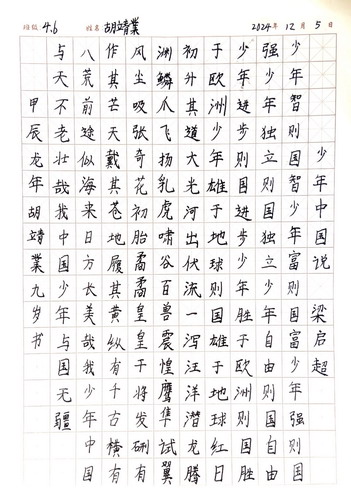 班级 4.6 姓名 胡靖業 2024年12月5日
少年中国说 梁启超
少年智则国智少年富则国富少年强则国
强少年独立则国独立少年自由则国自由
少年进步则国进步少年胜于欧洲则国胜
于欧洲少年雄于地球则国雄于地球红日
初外其道大光河出伏流一泻汪洋潜龙腾
渊鳞爪飞扬乳虎啸谷百兽震惶鹰隼试翼
风尘吸张奇花初胎矞矞皇皇干将发硎有
作其芒天戴其苍地履其黄纵有千古横有
八荒前途似海来日方长美哉我少年中国
与天不老壮哉我中国少年与国无疆
甲辰龙年胡靖業九岁书